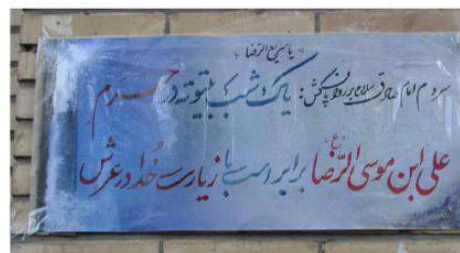 یا سریع الرضا
امام صادق سلام بر روان پاکش: یک شب بیتوته در حرم
علی ابن موسی الرّضا (ع) برابر است با زیارت خُدا در عرش